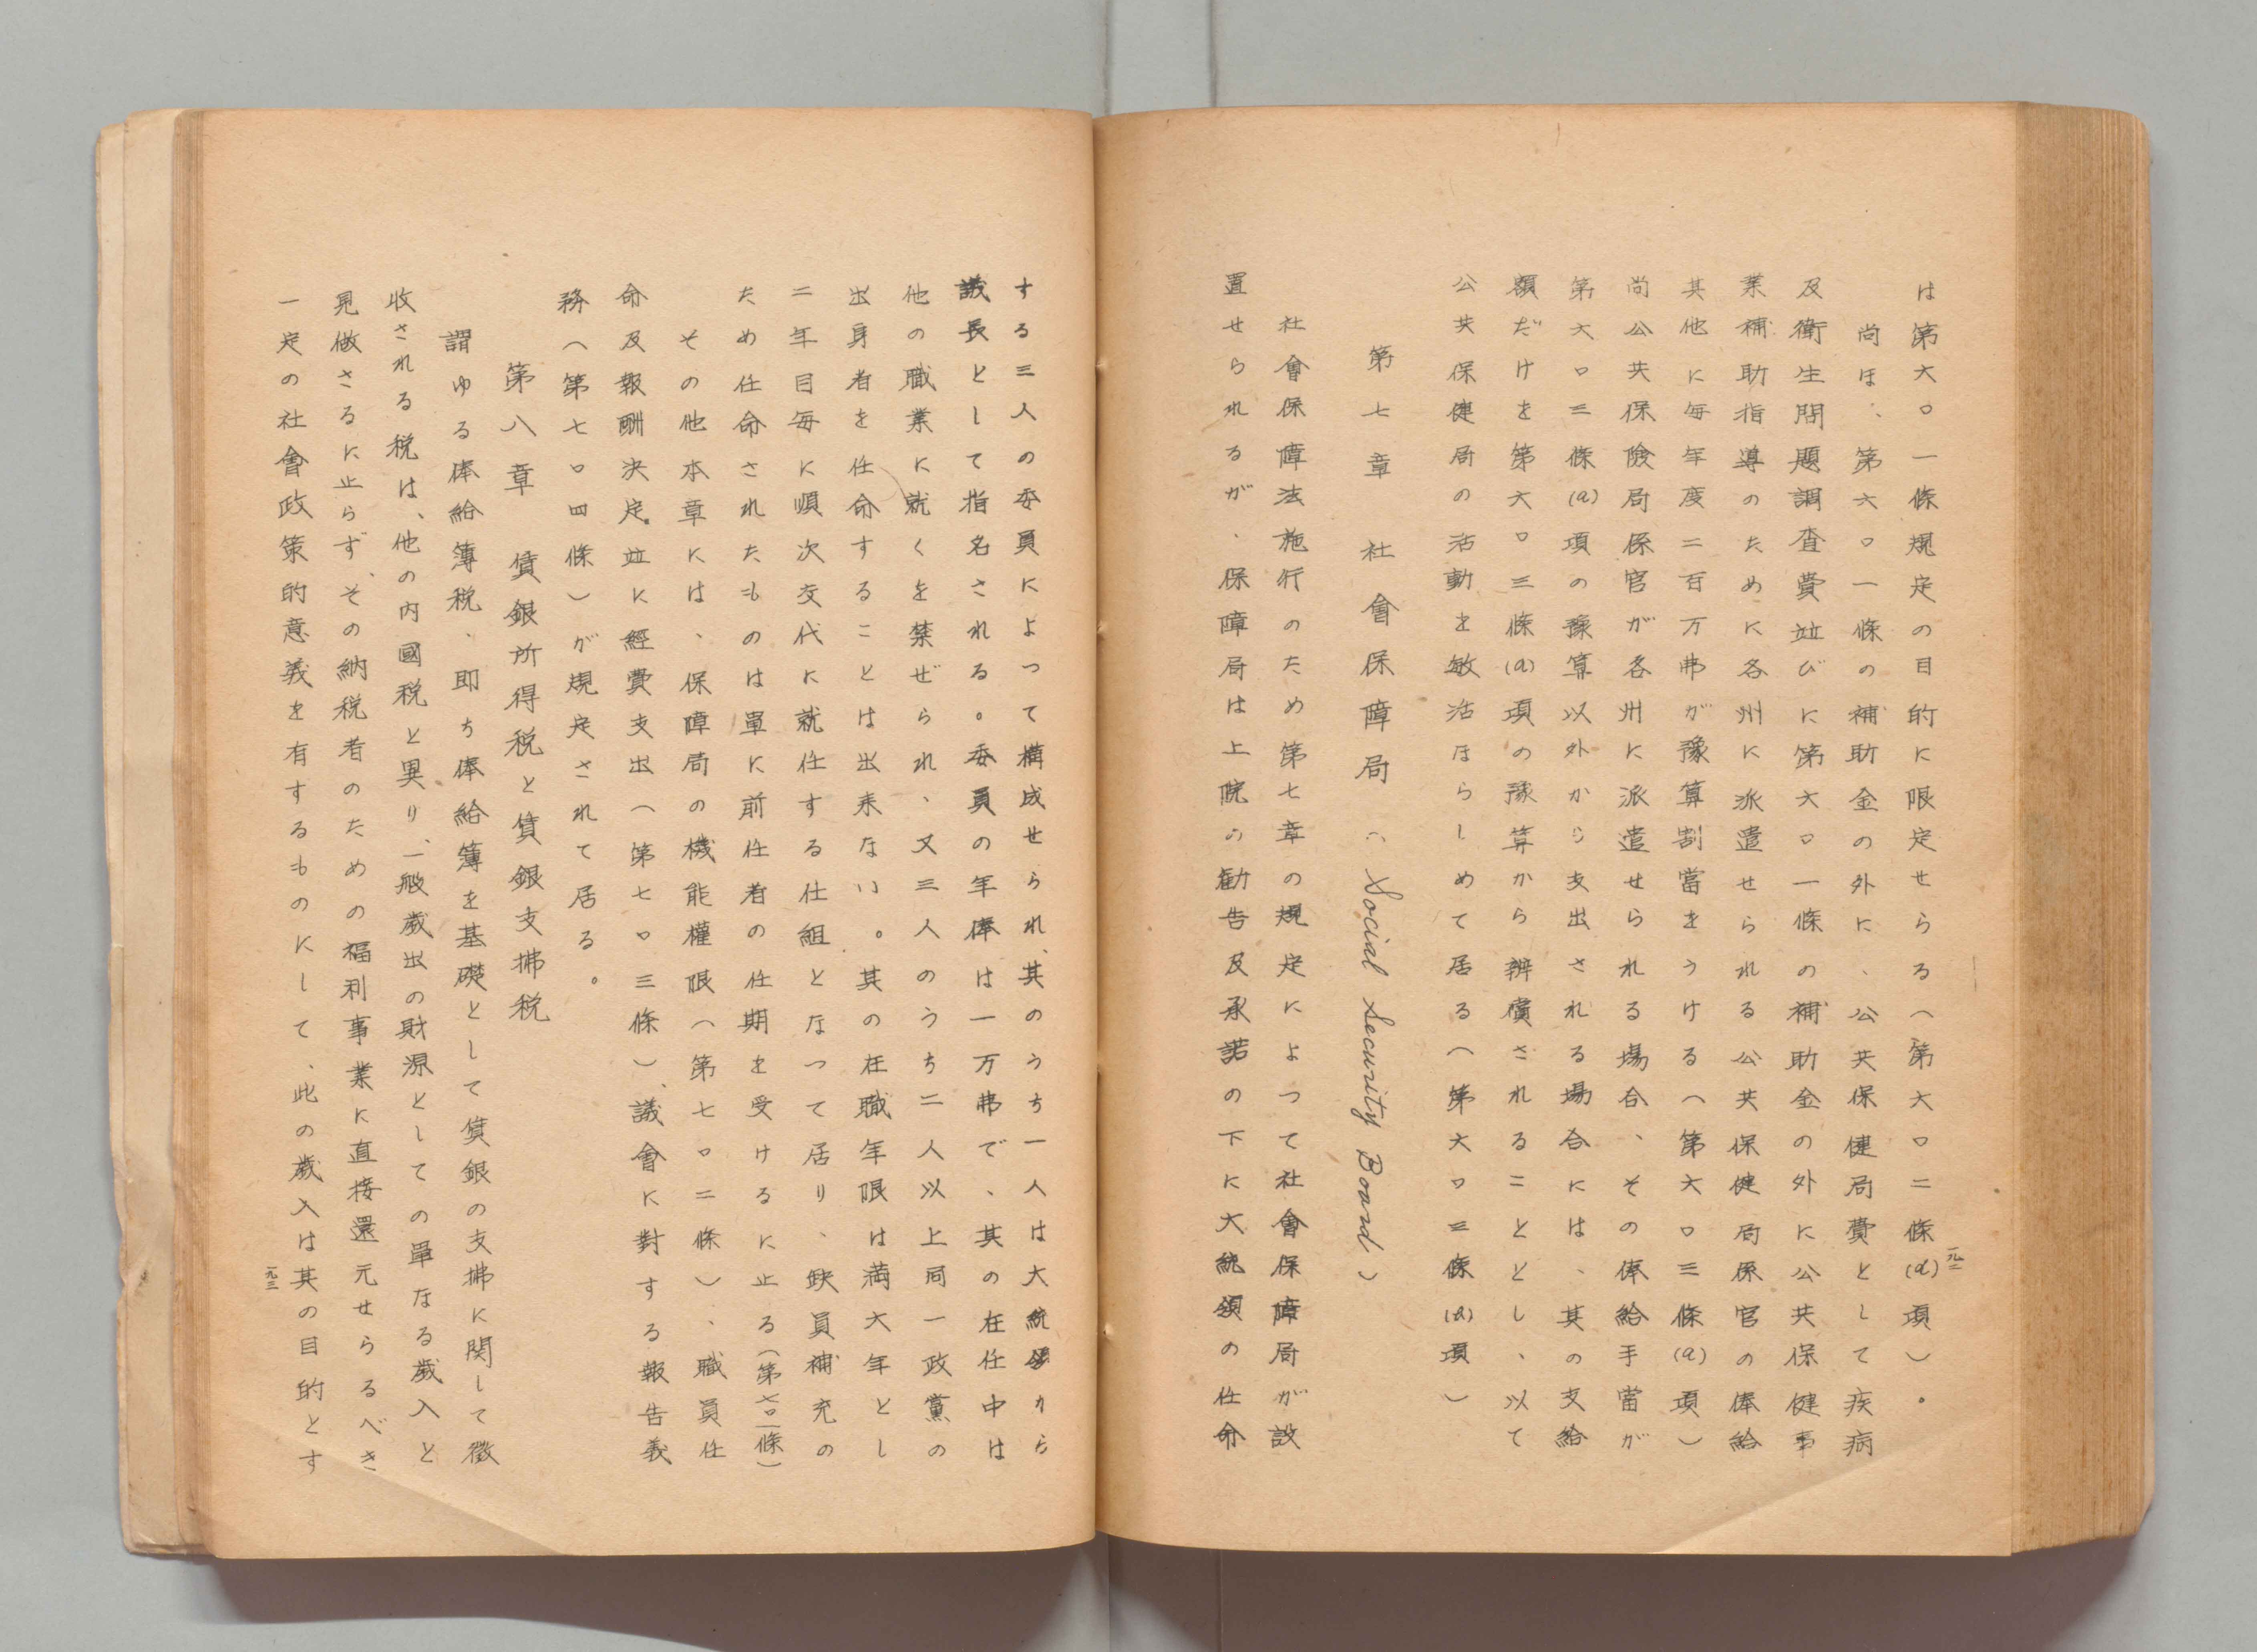 は第六〇一條規定の目的に限定せらる（第六〇二條(d)項）。
尚ほ、第六〇一條の補助金の外に、公共保健局費として疾病
及衛生問題調査費並びに第六〇一條の補助金の外に公共保健事
業補助指導のために各州に派遣せられる公共保健局係官の俸給
其他に毎年度二百万弗が豫算割當をうける（第六〇三條(a)項）
尚公共保險局係官が各州に派遣せられる場合、その俸給手當が
第六〇三條(a)項の豫算以外から支出される場合には、其の支給
額だけを第六〇三條(a)項の豫算から辨償されることとし、以て
公共保健局の活動を敏活ならしめて居る（第六〇三條(a)項）
第七章 社會保障局（Social Security Board）
社會保障法施行のため第七章の規定によつて社會保障局が設
置せられるが、保障局は上院の勧告及承諾の下に大統領の任命
一九二
する三人の委員によつて構成せられ、其のうち一人は大統領から
議長として指名される。委員の年俸は一万弗で、其の在任中は
他の職業に就くを禁ぜられ、又三人のうち二人以上同一政黨の
出身者を任命することは出来ない。其の在職年限は満六年とし
二年目毎に順次交代に就任する仕組となつて居り、缺員補充の
ため任命されたものは單に前任者の任期を受けるに止る（第七〇一條）
その他本章には、保障局の機能權限（第七〇二條）、職員任
命及報酬決定。並に經費支出（第七〇三條）、議會に對する報告義
務（第七〇四條）が規定されて居る。
第八章 賃銀所得税と賃銀支拂税
謂ゆる俸給簿税、即ち俸給簿を基礎として賃銀の支拂に関して徴
收される税は、他の内國税と異り、一般歳出の財源としての單なる歳入と
見做さるに止らず、その納税者のための福利事業に直接還元せらるべき
一定の社會政策的意義を有するものにして、此の歳入は其の目的とす
一九三